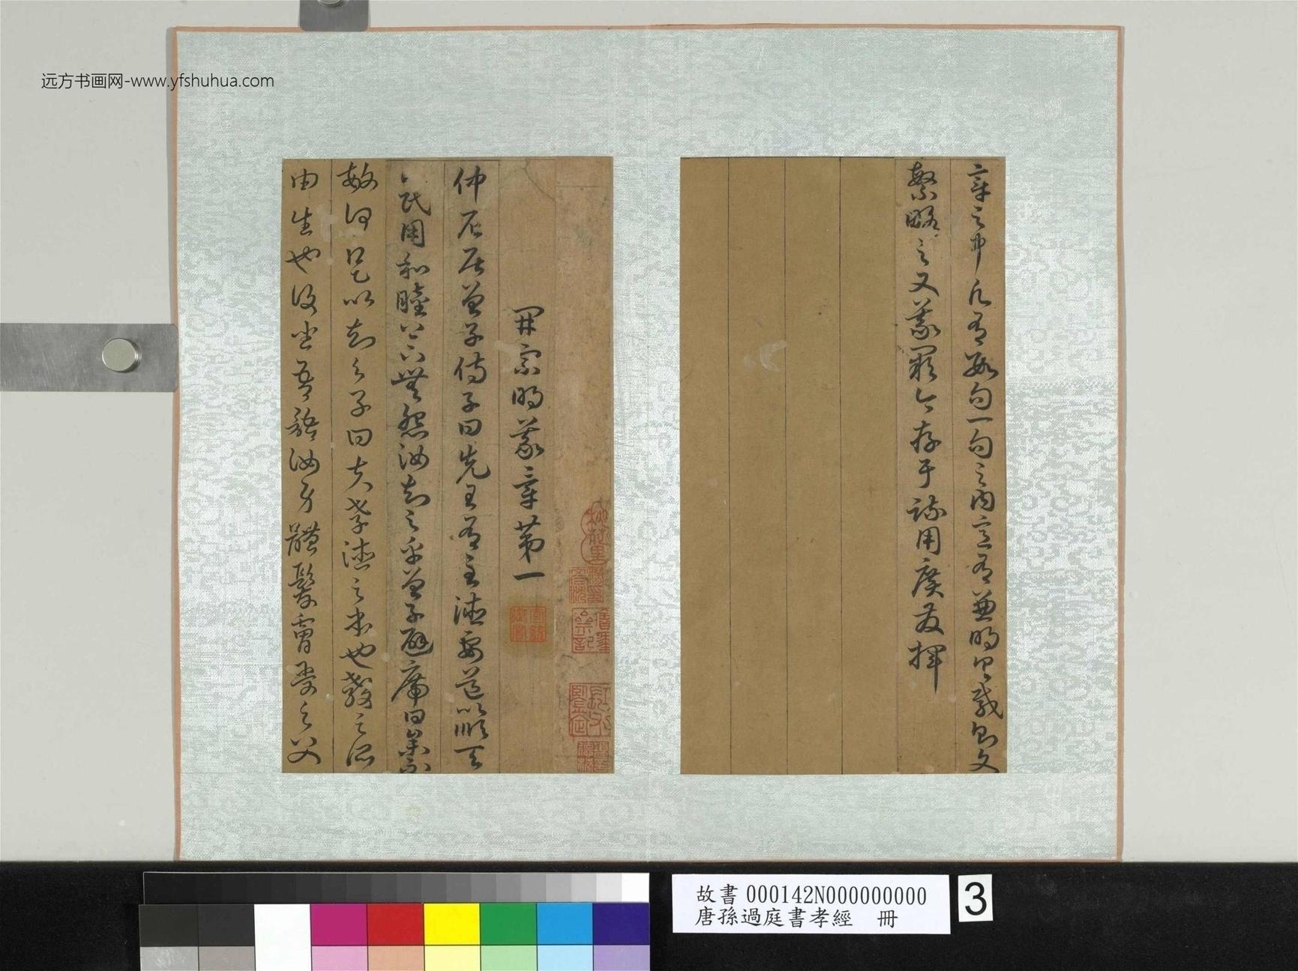 远方书画网-www.yfshuhua.com
章之中凡有數句一句之內意有兼明具載則文
繁略之又義闕今存于疏用廣發揮
開宗明義章第一
仲尼居曾子侍子曰先王有至德要道以順天
下民用和睦上下無怨汝知之乎曾子避席曰參不
敏何足以知之子曰夫孝德之本也教之所
由生也復坐吾語汝身體髮膚受之父
故書 000142N000000000
唐孫過庭書孝經 冊
3